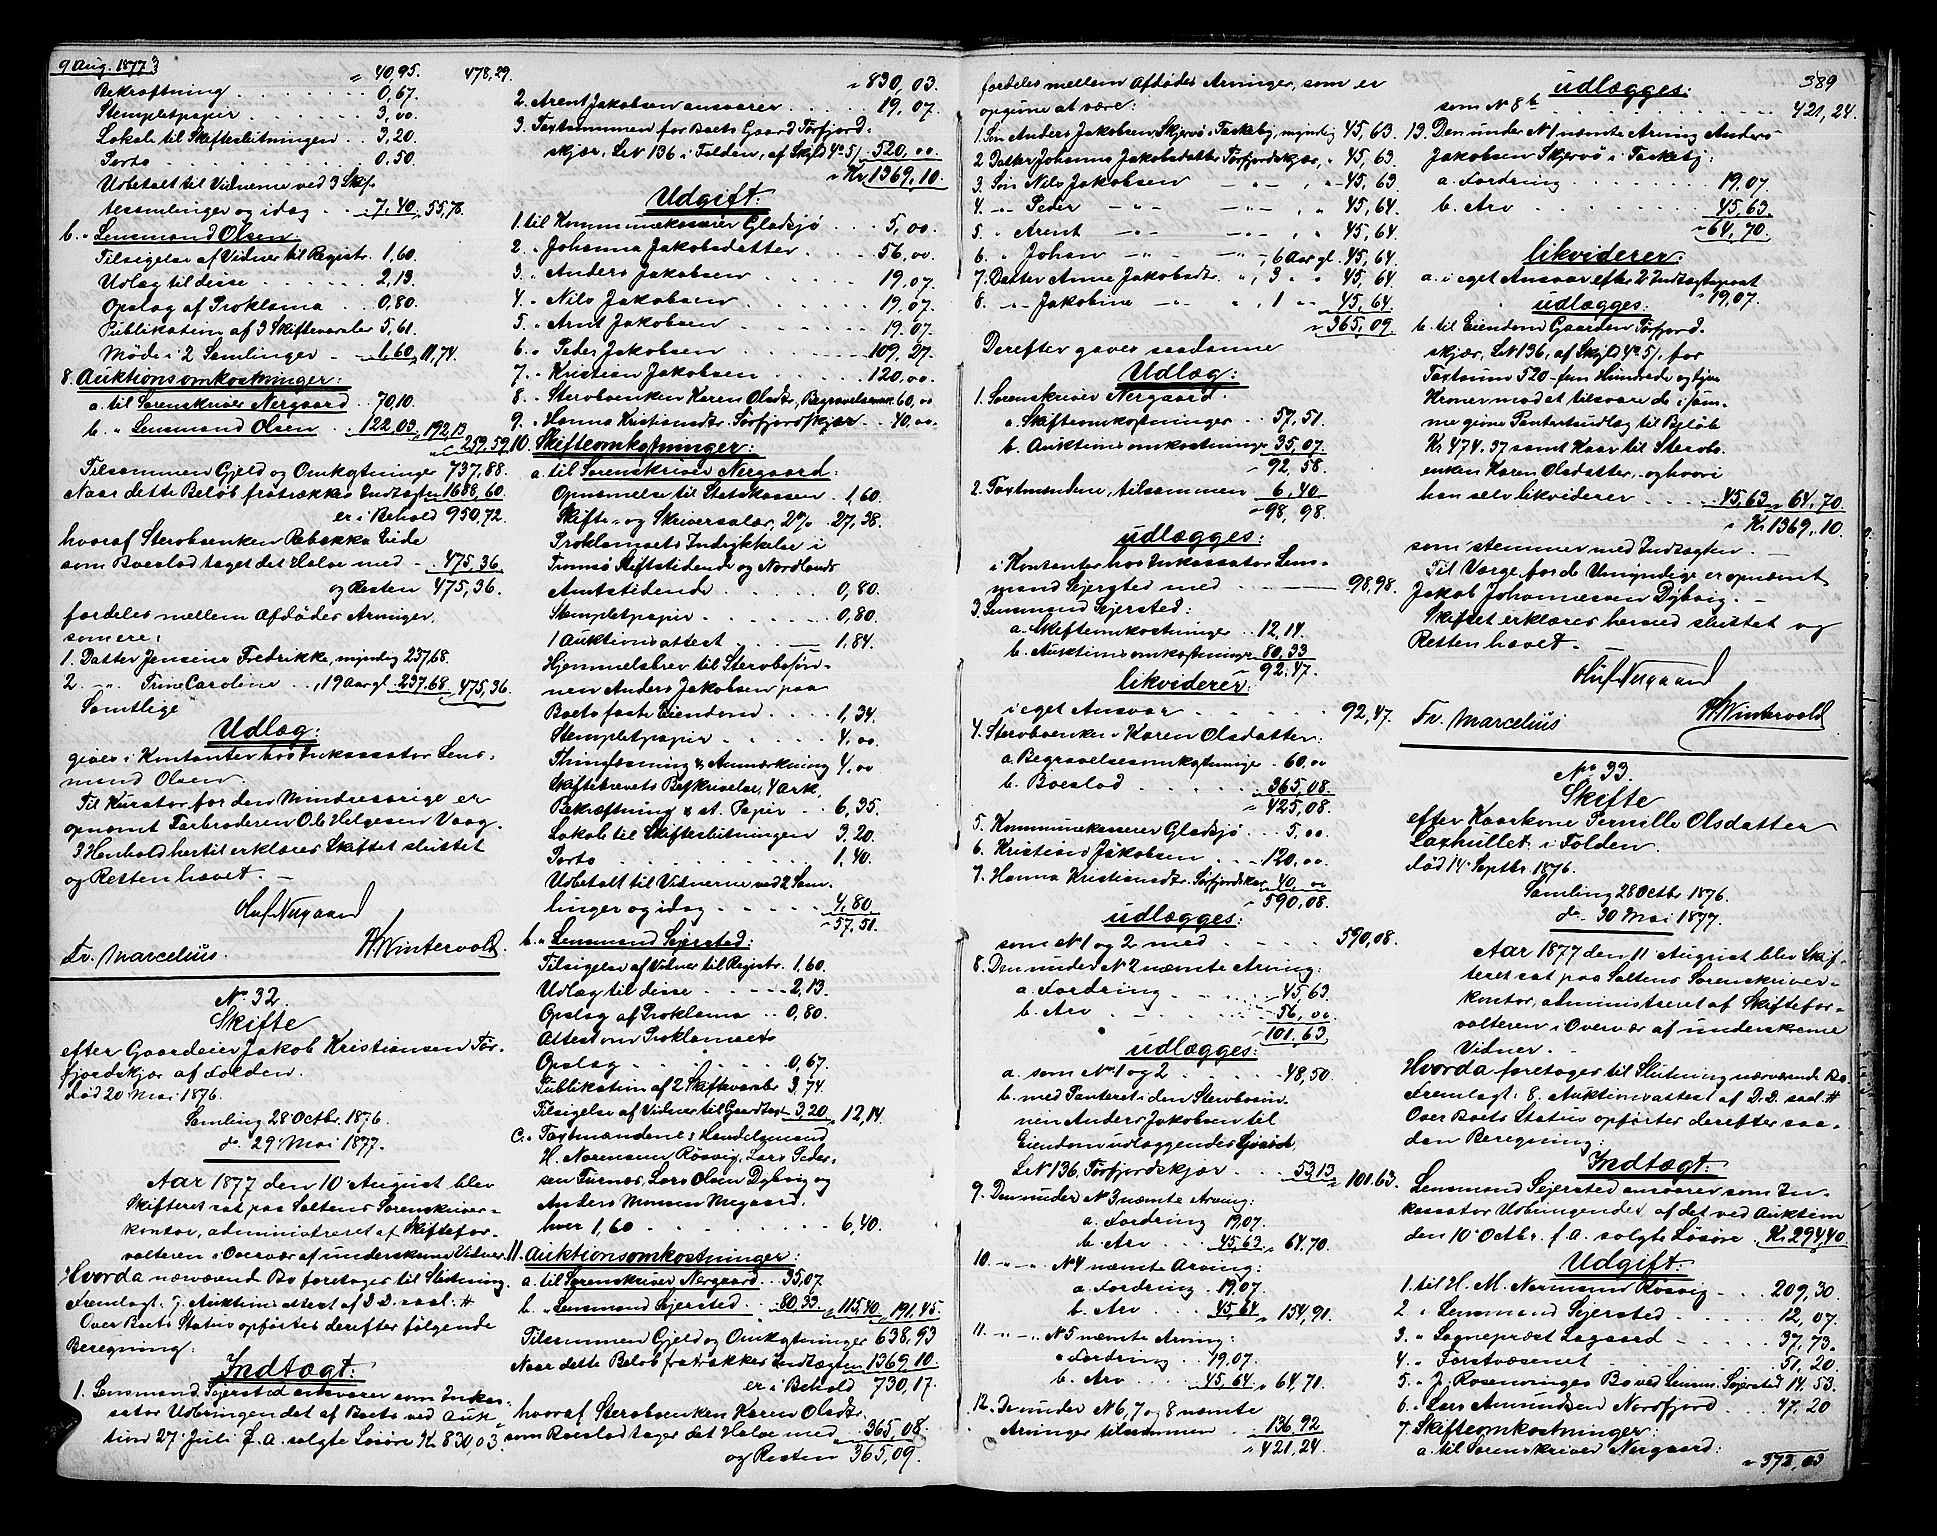 9 Aug. 1877
" 40,95. 478,29.
Bekræftning . . . . . . 0,67.
Stempletpapir . . . . . 3,00.
Lokale til Skifteslutningen . . 3,20.
Porto . . . . . 0,50.
Udbetalt til Vidnerne ved 3 Skif-
tesamlinger og idag . . 7,40. 55,72.
b. " Lensmand Olsen.
Tilsigelse af Vidner til Registr. 1,60.
Udlæg til disse . . . . 2,13.
Opslag af Proklama . . 0,80.
Publikation af 3 Skiftevarsler 5,61.
Møde i 2 Samlinger - . 1,60. 11,74.
8. Auktionsomkostninger:
a. til Sorenskriver Nergaard . 70,10.
b. " Lensmand Olsen . . 122,03. 192,13
" 259,59
Tilsammen Gjeld og Omkostninger 737,88.
Naar dette Beløb fratrækkes Indtægten 1688,60.
er i Behold 950,72.
hvoraf Sterboenken Rebekka Eide
som Boeslod taget det Halve med . . 475,36
og Resten 475,36.
fordeles mellem Afdødes Arvinger,
som ere:
1. Datter Jensine Fredrikke, myndig 237,68.
2. " Trine Caroline . . , 19 Aar gl. 237,68. 475,36.
Samtlige
Udlæg:
gives i Kontanter hos Inkassator Lens-
mand Olsen.
Til Kurator for den Mindreaarige er
opnævnt Farbroderen Ole Helgesen Vaag.
I Henhold hertil erklæres Skiftet sluttet
og Retten hævet. -
Oluf Nergaard
Fr. Marcelius. H. Wintervold.
No 32.
Skifte
efter Gaardeier Jakob Kristiansen Tør-
fjordskjær af Folden.
død 20 Mai 1876.
Samling 28 Octbr. 1876.
do. 29 Mai 1877.
Aar 1877 den 10 August blev
Skifteret sat paa Saltens Sorenskriver-
kontor, administreret af Skiftefor-
valteren i Overvær af underskrevne Vidner.
Hvorda nærværende Bo foretoges til Slutning.
Fremlagt: 7. Auktionsattest af D.D. saal. #
Over Boets Status opførtes derefter følgende
Beregning:
Indtægt:
1. Lensmand Sejersted ansvarer som Inkas-
sator Udbringendet af Boets ved Auk-
tion 27 Juli f. A. solgte Løsøre Kr 830,03.
" 830,03.
2. Arent Jakobsen ansvarer . . . . 19,07.
3. Taxtsummen for Boets Gaard Tørfjord-
skjær, LN 136 i Folden, af Skyld 4 . 520,00.
" Kr. 1369,10.
Udgift:
1. til Kommunekasserer Gladsjø . . . 5,00.
2. " Johanna Jakobsdatter . . . . 56,00.
3. " Anders Jakobsen . . . . 19,07.
4. " Nils Jakobsen . . . . 19,07.
5. " Arnt Jakobsen . . . . 19,07.
6. " Peder Jakobsen . . . . 109,27.
7. " Kristian Jakobsen . . . . 120,00.
8. " Sterboenken Karen Olsdtr., Begravelsesomk. 60,00
9. " Hanna Kristiansdtr. Tørfjordskjær . . 40,00.
10. Skifteomkostninger:
a. til Sorenskriver Nergaard:
Opnævnelse til Statskassen . 1,60.
Skifte- og Skriversalær, 2% . 27,38.
Proklamaets Indrykkelse i
Tromsø Stiftstidende og Nordlands
Amtstidende . . . . . 0,80.
Stempletpapir . . . . . 0,80.
1 Auktionsattest . . . . 1,84.
Hjemmelsbrev til Sterbosøn-
nen Anders Jakobsen paa
Boets faste Eiendom . . . . 1,34.
Stempletpapir . . . . . 4,00.
Thinglæsning & Anmærkning 4,00
Skiftebrevets Beskrivelse, 4 Ark,
Bekræftning & st. Papir . . 6,35.
Lokale til Skifteslutningen 3,20.
Porto . . . . . 1,40.
Udbetalt til Vidnerne ved 2 Sam-
linger og idag . . . . 4,80.
" 57,51.
b. " Lensmand Sejersted:
Tilsigelse af Vidner til Registr. 1,60.
Udlæg til disse . . . . 2,13.
Opslag af Proklama . . 0,80.
Attest om Proklamaets
Opslag . . . . . 0,67.
Publikation af 2 Skiftevarsler 3,74.
Tilsigelse af Vidner til Gaardtaxt 3,20. 12,14.
c. " Taxtmændene: Handelsmand
H. Normann Røsvig, Lars Peder-
sen Furnæs, Lars Olsen Dybvig og
Anders Monsen Nygaard.
hver 1,60 . . . . . 6,40.
11. Auktionsomkostninger:
a. til Sorenskriver Nergaard . . 35,07.
b. " Lensmand Sejersted . . 80,33. 115,40. 191,45.
Tilsammen Gjeld og Omkostninger 638,93
Naar dette Beløb fratrækkes Indtægten 1369,10.
er i Behold 730,17.
hvoraf Sterboenken Karen Olsdtr.
som Boeslod tager det Halve med . . 365,08.
og Resten 365,09.
fordeles mellem Afdødes Arvinger, som er
opgivne at være:
1. Søn Anders Jakobsen Skjervø i Taskeby, myndig 45,63.
2. Datter Johanna Jakobsdatter Tørfjordskjær, " 45,63.
3. Søn Nils Jakobsen - " - , " 45,63.
4. " Peder - " - - " - , " 45,64.
5. " Arent - " - - " - , " 45,64.
6. " Johan - " - - " - , 6 Aar gl. 45,64.
7. Datter Anne Jakobsdtr. " , 3 " " 45,64
8. " Jakobine - " - " , 1 " " 45,64.
" 365,09.
Derefter gaves saadanne
Udlæg:
1. Sorenskriver Nergaard.
a. Skifteomkostninger . . 57,51.
b. Auktionsomkostninger 35,07.
" 92,58.
2. Taxtmændene, tilsammen 6,40
" 98,98.
udlægges:
i Kontanter hos Inkassator Lens-
mand Sejersted med . . . 98,98.
3. Lensmand Sejersted:
a. Skifteomkostninger . . 12,14.
b. Auktionsomkostninger 80,33
" 92,47.
likviderer:
i eget Ansvar . . . . . 92,47.
4. Sterboenken Karen Olsdatter:
a. Begravelsesomkostninger . 60,00
b. Boeslod . . . . 365,08.
" 425,08.
5. Kommunekasserer Gladsjø . . . 5,00.
6. Kristian Jakobsen . . . 120,00.
7. Hanna Kristiansdtr. Tørfjordskjær 40,00
" 590,08.
udlægges:
som N 1 og 2 med . . . . 590,08.
8. Den under N 2 nævnte Arving:
a. Fordring . . . . 45,63.
b. Arv . . . . 56,00.
101,63.
udlægges:
a. som No 1 og 2 . . . . 48,50.
b. med Panteret i den Sterbosøn-
nen Anders Jakobsen til
Eiendom udlæggendes
LN 136 Tørfjordskjær . . . 53,13. 101,63.
9. Den under N 3 nævnte Arving:
a. Fordring 19,07.
b. Arv . . 45,63. 64,70.
10. " " N 4 nævnte Arving:
a. Fordring . 19,07.
b. Arv . . 45,64 " 154,91.
11. " " N 5 nævnte Arving:
a. Fordring . . 19,07.
b. Arv . . . 45,64 " 64,71.
12. De under N 6, 7 og 8 nævnte
Arvinger tilsammen . . . 136,92
" 421,24.
389
udlægges:
som N 8 b . . . . . 421,24.
13. Den under N 1 nævnte Arving Anders
Jakobsen Skjervø i Taskeby:
a. Fordring . . . . . 19,07.
b. Arv . . . . . 45,63.
" 64,70.
likviderer:
a. i eget Ansvar efter 2 Indtægtspost
" 19,07.
udlægges:
b. til Eiendom Gaarden Tørfjord-
skjær, LN 136, af Skyld 4, for
Taxtsum 520 - fem Hundrede og tyve
Kroner mod at tilsvare de i sam-
me givne Panteretsudlæg til Beløb
Kr 474,37 samt Kaar til Sterbo-
enken Karen Olsdatter, og hvori
han selv likviderer . . . 45,63 " 64,70.
" Kr 1369,10.
som stemmer med Indtægten. -
Til Værge for de Umyndige er opnævnt
Jakob Johannesen Dybvig. -
Skiftet erklæres hermed sluttet og
Retten hævet. -
Oluf Nergaard
Fr. Marcelius H. Wintervold
No 33.
Skifte
efter Kaarkone Pernille Olsdatter
Laxhullet i Folden.
død 14 Septbr. 1876.
Samling 28 Octbr. 1876.
do. 30 Mai 1877.
Aar 1877 den 11 August blev Skif-
teret sat paa Saltens Sorenskriver-
kontor, administreret af Skiftefor-
valteren i Overvær af underskrevne
Vidner. -
Hvorda foretoges til Slutning nærværende Bo.
Fremlagt: 8. Auktionsattest af D.D. saal. #
Over Boets Status opførtes derefter saa-
dan Beregning:
Indtægt:
Lensmand Sejersted ansvarer som In-
kassator Udbringendet af det ved Auktion
den 10 Octbr. f. A. solgte Løsøre . Kr. 294,40.
Udgift:
1. til H. M. Normann Røsvig . . . 209,30.
2. " Lensmand Sejersted . . . . 12,07.
3. " Sognepræst Søgaard . . . . 37,73.
4. " Forstvæsenet . . . . . 51,20.
5. " J. Rosenvinges Bo ved Lensm. Sejersted 14,53.
6. " Lars Amundsen Nordfjord . . . 47,20
7. Skifteomkostninger:
a. til Sorenskriver Nergaard:
" 372,03